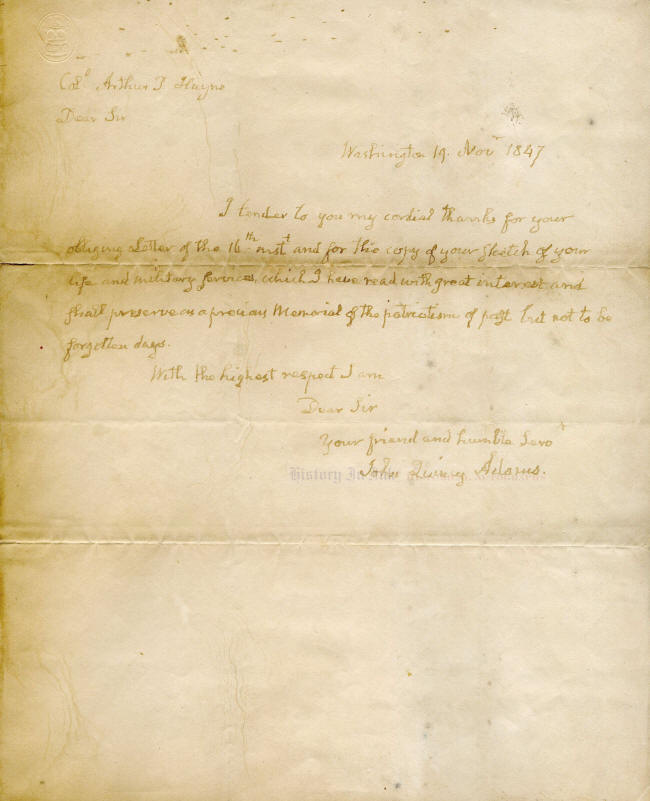 Colº Arthur P. Hayne
Dear Sir
Washington 19. Novr 1847
I tender to you my cordial thanks for your
obliging Letter of the 16th instt and for the copy of your sketch of your
life and military services, which I have read with great interest and
shall preserve as a precious Memorial of the patriotism of past but not to be
forgotten days.
With the highest respect I am
Dear Sir
Your friend and humble Servt
John Quincy Adams.
History In Ink